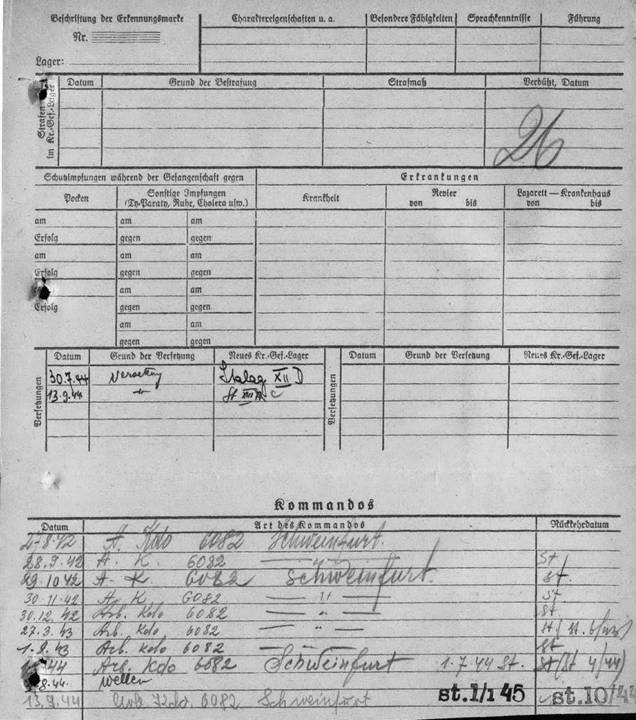 Beschriftung der Erkennungsmarke
Nr.
Lager:
Charaktereigenschaften u. a.
Besondere Fähigkeiten
Sprachkenntnisse
Führung
Strafen im Kr.-Gef.-Lager
Datum
Grund der Bestrafung
Strafmaß
Verbüßt, Datum
26
Schutzimpfungen während der Gefangenschaft gegen
Erkrankungen
Pocken
Sonstige Impfungen
(Ty-Paraty, Ruhr, Cholera usw.)
Krankheit
Revier
von bis
Lazarett — Krankenhaus
von bis
am am am
Erfolg gegen gegen
am am am
Erfolg gegen gegen
am am
Erfolg gegen gegen
am am
gegen gegen
Versetzungen
Datum Grund der Versetzung Neues Kr.-Gef.-Lager
30.7.44 Stalag XII D
13.9.44
Versetzungen
Datum Grund der Versetzung Neues Kr.-Gef.-Lager
Kommandos
Datum Art des Kommandos Rückkehrdatum
27.8.42 A. Kdo 6082 Schweinfurt.
28.9.42 A. K. 6082 St
29.10.42 A. K 6082 Schweinfurt. St.
30.11.42 A. K 6082 — " — St
30.12.42 Arb. Kdo 6082 — " — St.
27.3.43 Arb. Kdo 6082 — " —
1.8.43 Arb. Kdo 6082 St
44 Arb. Kdo 6082 Schweinfurt 1.7.44 St. St (St 4/44)
8.44. Wellen
st.1/1 45
st.10/44
13.9.44 Arb. Kdo. 6082 Schweinfurt